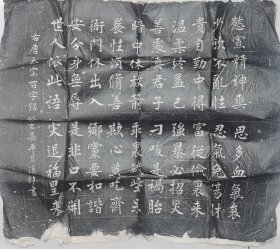 愁寡精神爽思多血氣衰
少飲不亂性忍氣免傷財
貴自勤中得富從儉來
温柔終益己強暴必招災
善處真君子刁唆是禍胎
暗中休放箭乖裏藏些呆
養性須脩善欺心莫吃齋
衙門休出入鄉黨要和諧
安分身無辱是非口不開
世人依此語災退福星來
右唐太宗百字銘